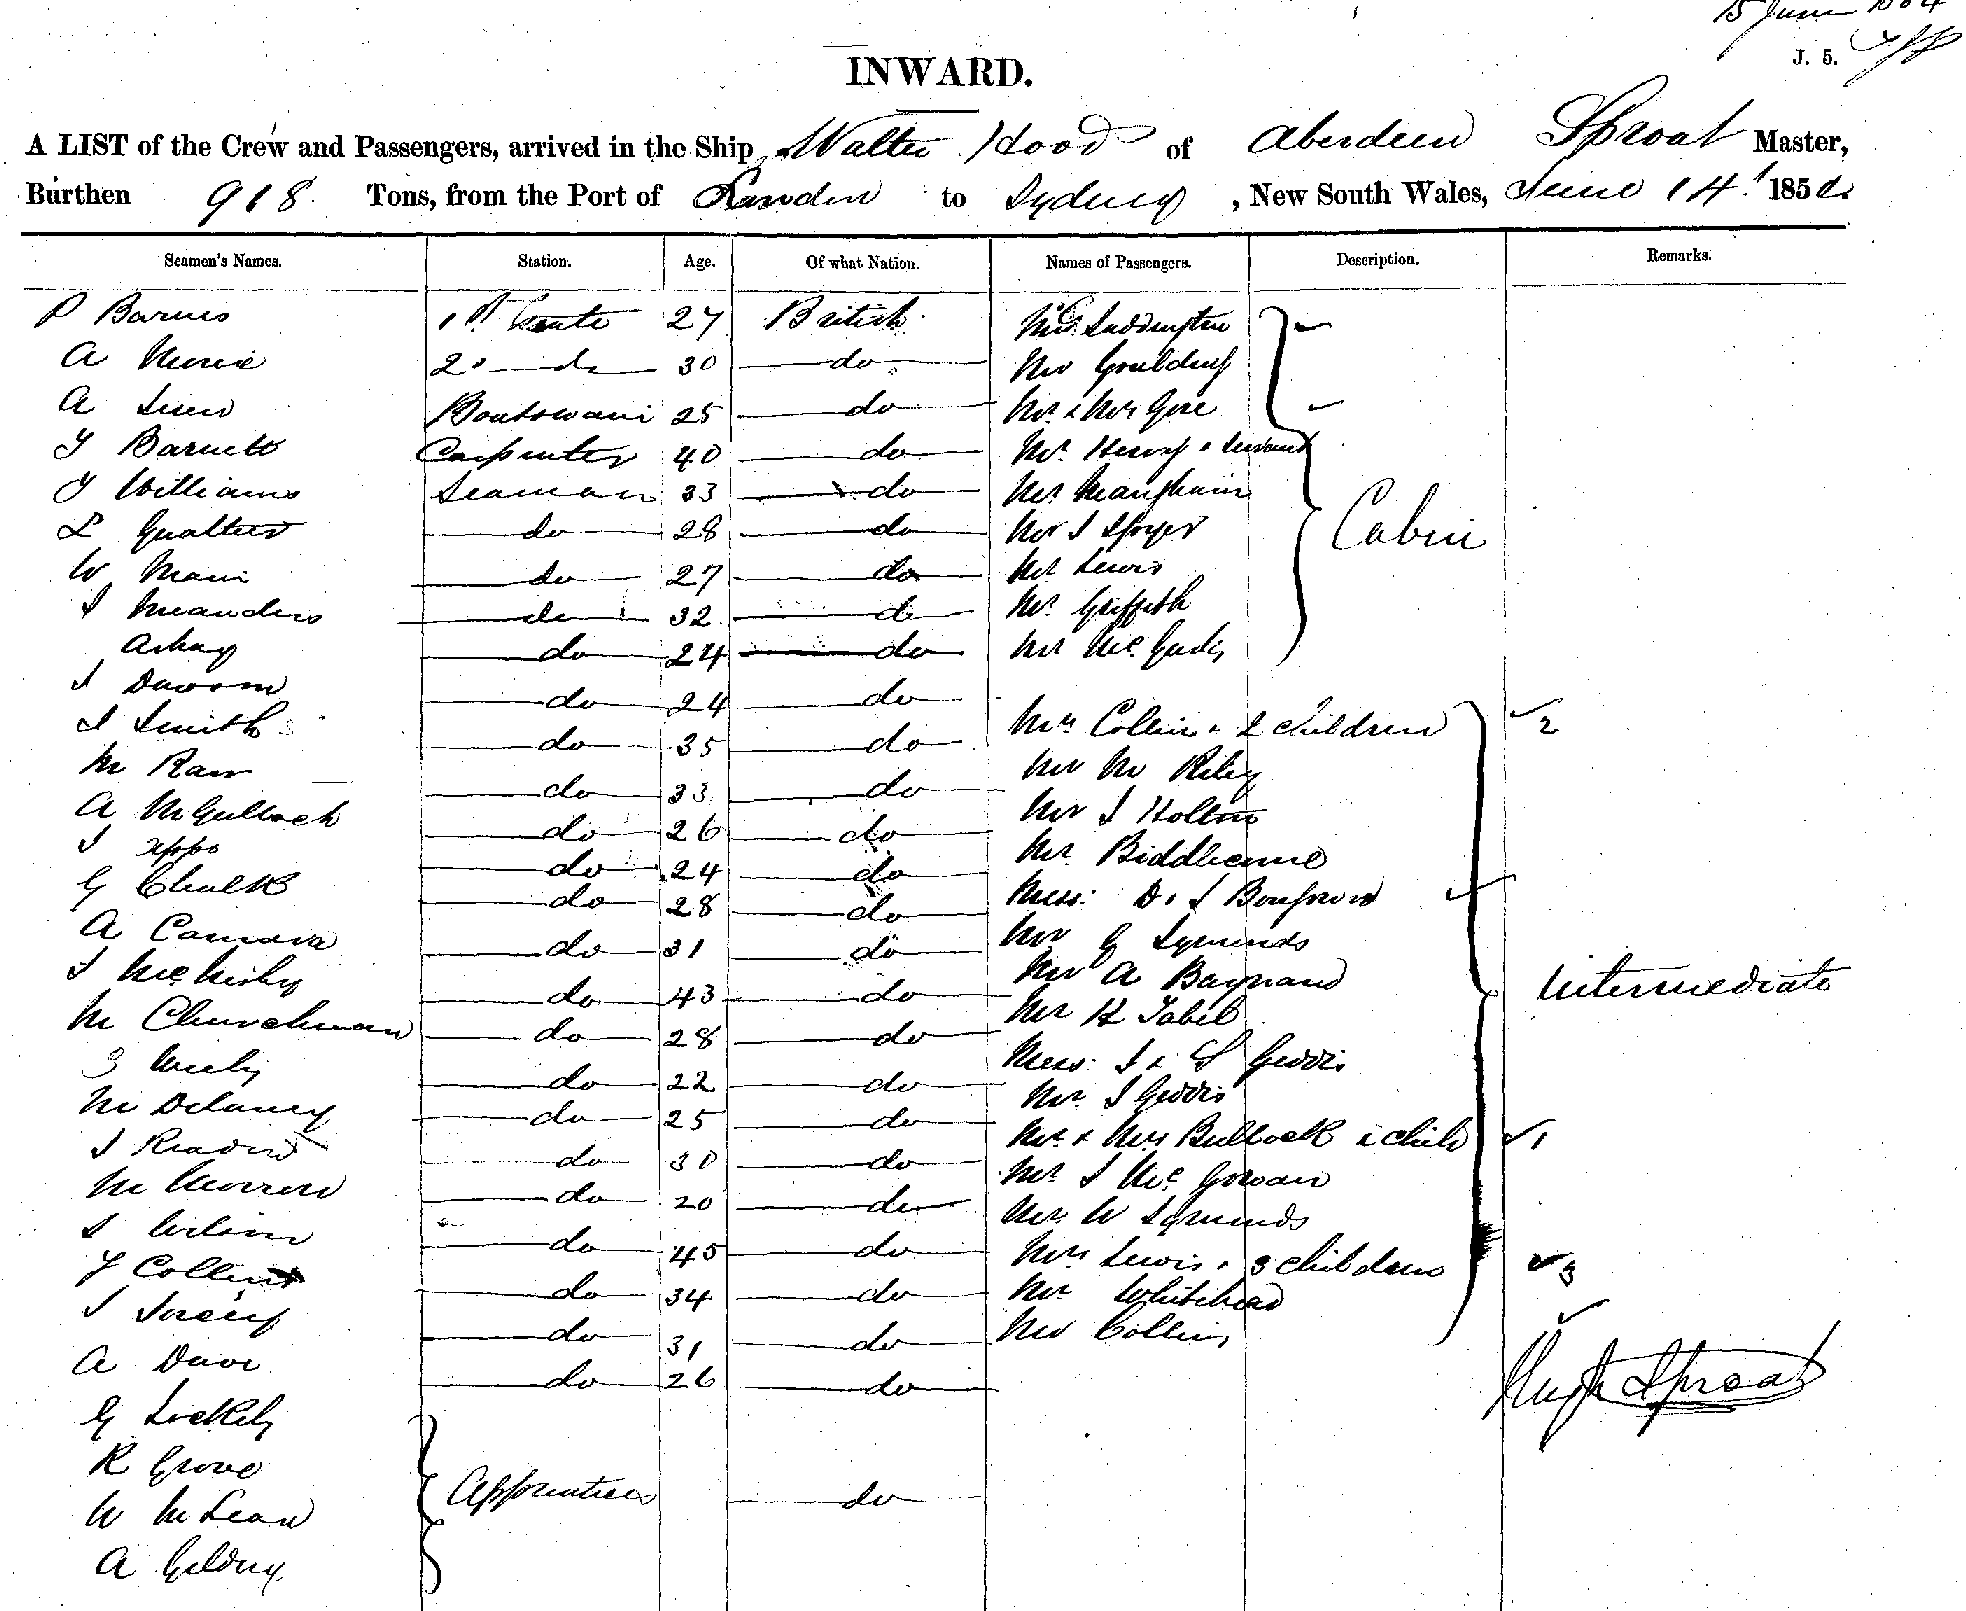 15 June
J. 5.
INWARD.
A LIST of the Crew and Passengers, arrived in the Ship Walter Hood of Aberdeen Sproat Master,
Burthen 918 Tons, from the Port of London to Sydney, New South Wales, June 14 185
Seamen's Names. Station. Age. Of what Nation. Names of Passengers. Description. Remarks.
P Barnes 1st Mate 27 British Mrs Luddington
A 2d do 30 do Mr Goulding
A Boatswain 25 do Mr & Mrs Gore
T Barnett Carpenter 40 do Mr Hervey & Servant
J Williams Seaman 33 do Mr Manghain
L Gualter do 28 do Mr J Spyer Cabin
W Main do 27 do Mr Lewis
J Meanders do 32 do Mr Griffith
do 24 do Mr
J Dawson do 24 do
J Smith do 35 do Mrs Collins & 2 children 2
M Raw do 33 do Mr M Riley
A McGulloch do 26 do Mr J Holton
J Appo do 24 do Mr
G Chalk do 28 do Mess: D & J
A Camara do 31 do Mr G Symonds
J do 43 do Mr A Baynand Intermediate
M Churchman do 28 do Mr H Tabel
do 22 do Mess: J & S Geddis
M Delaney do 25 do Mr J Geddis
J do 30 do Mr & Mrs Bullock 1 child 1
M do 20 do Mr J McGowan
J Wilson do 45 do Mr W Symonds
T Collins do 34 do Mrs Lewis & 3 children 3
J do 31 do Mr Whitehead
A do 26 do Mr Collins
Hugh Sproat
G
R Grove
W McLean Apprentices do
A